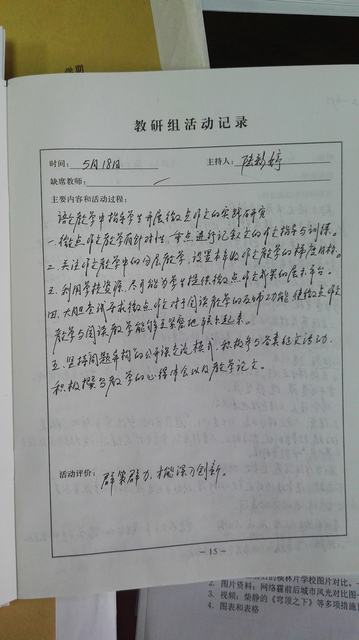 教研组活动记录
时间: 5月18日 主持人: 陆彩婷
缺席教师:
主要内容和活动过程:
语文教学中指导学生开展微点作文的实践研究
一. 微点作文教学有针对性, 重点进行记叙文的作文指导与训练。
二. 关注作文教学中的分层教学, 设置本年段作文教学的梯度目标。
三. 利用学校资源, 尽可能为学生提供微点作文成果的展示平台。
四. 大胆尝试寻求微点作文对于阅读教学的反哺功能, 使微点作文
教学与阅读教学能够更紧密地联系起来。
五. 坚持问题平构的公开课交流模式, 积极参与各类征文活动,
积极撰写教学的心得体会以及教学论文。
活动评价: 群策群力, 才能深刻创新。
- 15 -
图片对比,
2. 图片资料: 网络霾前后城市风光对比图
3. 视频: 柴静的《穹顶之下》等多项措施
4. 图表和表格